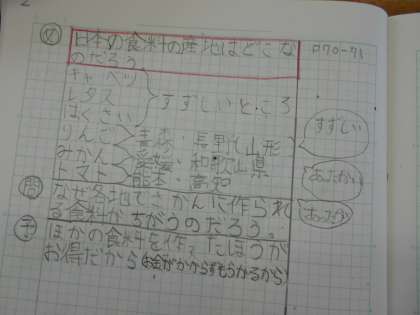 め 日本の食料の産地はどこな
のだろう
P70-71
キャベツ
レタス
はくさい
すずしいところ
りんご 青森・長野・山形
みかん 愛媛・和歌山県
トマト 熊本・高知
すずしい
あたたかい
あたたかい
問 なぜ各地でさかんに作られ
る食料がちがうのだろう。
予 ほかの食料を作ったほうが
お得だから(お金がかからずもうかるから)